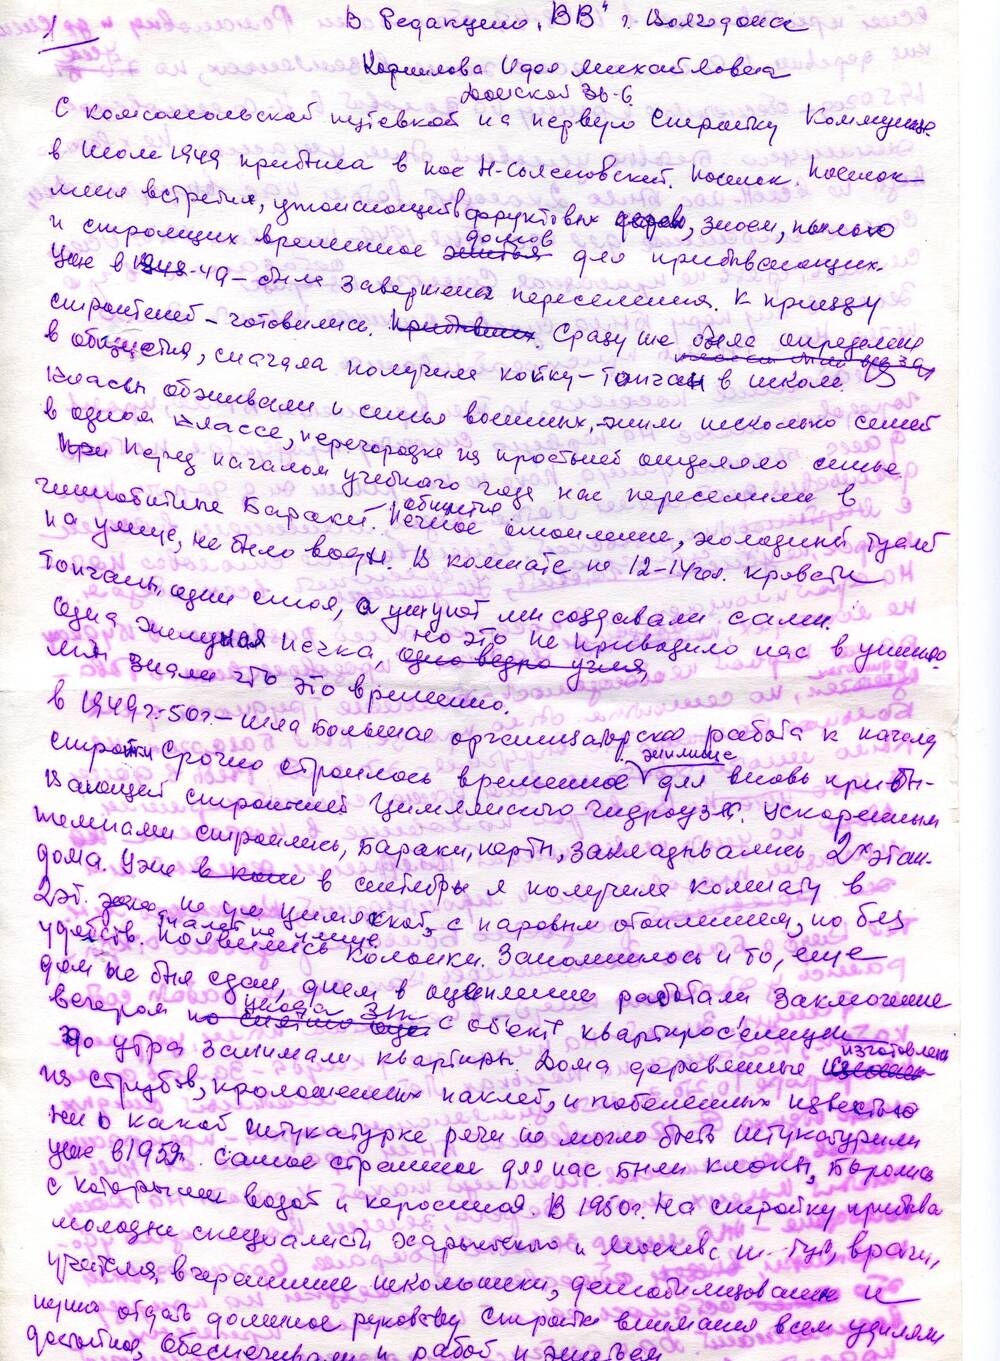 1
В Редакцию "ВВ" г. Волгодонска
Корнилова Идея Михайловна
Донской 36-6
С комсомольской путевкой на первую Стройку Коммунизма
в июле 1949 прибыла в пос Н-Соленовский. Поселок. Поселок
меня встретил, утопающий в фруктовых, зноем, пылью
и строящих временное домов для прибывающих.
Уже в 1948-49 - был завершена переселения. К приезду
строителей - готовились. Прибывших. Сразу же была определена
в общежития, сначала получила койку-топчан в школе. В
классы обживали и семьи военных, жили несколько семей
в одном классе, перегородка из простыней отделяло семье
При Перед началом учебного года нас переселили в
глинобитные Бараки. общежитие Печное отопление, холодный туалет
на улице, не было воды. В комнате по 12-14 чел. кровати
топчаны, один стол, а уют мы создавали сами.
Одна железная печка, одно ведро угля, но это не приводило нас в уныние
мы знали что это временно.
в 1949г.-50г.- шла большая организаторская работа к началу
стройки Срочно строилось временное жилище для вновь прибы-
вающей строителей Цимлянского гидроузла. Ускоренным
темпами строились, Бараки, закладывались 2х этаж.
дома. Уже в сентябре я получила комнату в
2эт. по ул Цимлянской, с паровым отоплением, но без
удобств. туалет на улице Появились колонки. Запомнилось и то, еще
дом не был сдан, днем в оцеплении работали заключение
вечером уходя З/к с объект квартиросъемщики
до утра занимали квартиры. Дома деревянные изготовлены
из струбов, проложенных паклей, и побеленных известью
ни о какой штукатурке речи не могло быть штукатурили
уже в 1959г. Самое страшное для нас были клопы, боролись
с которыми водой и керосином. В 1950г. На стройку прибыва
молодые специалисты Харьковского и Москвс ин-тув, врачи,
учителя, вчерашние школьники, демобилизованн и
нужно отдать должное руковству стройки внимания всем уделяли
достойное, Обеспечивали и работ и жильем